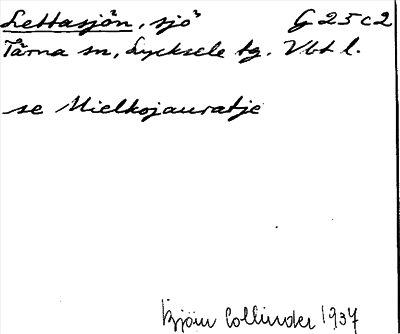 Lettasjön, sjö G 25 c 2
Tärna sn, Lycksele tg. Vbt l.
se Mielkojauratje
Björn Collinder 1937